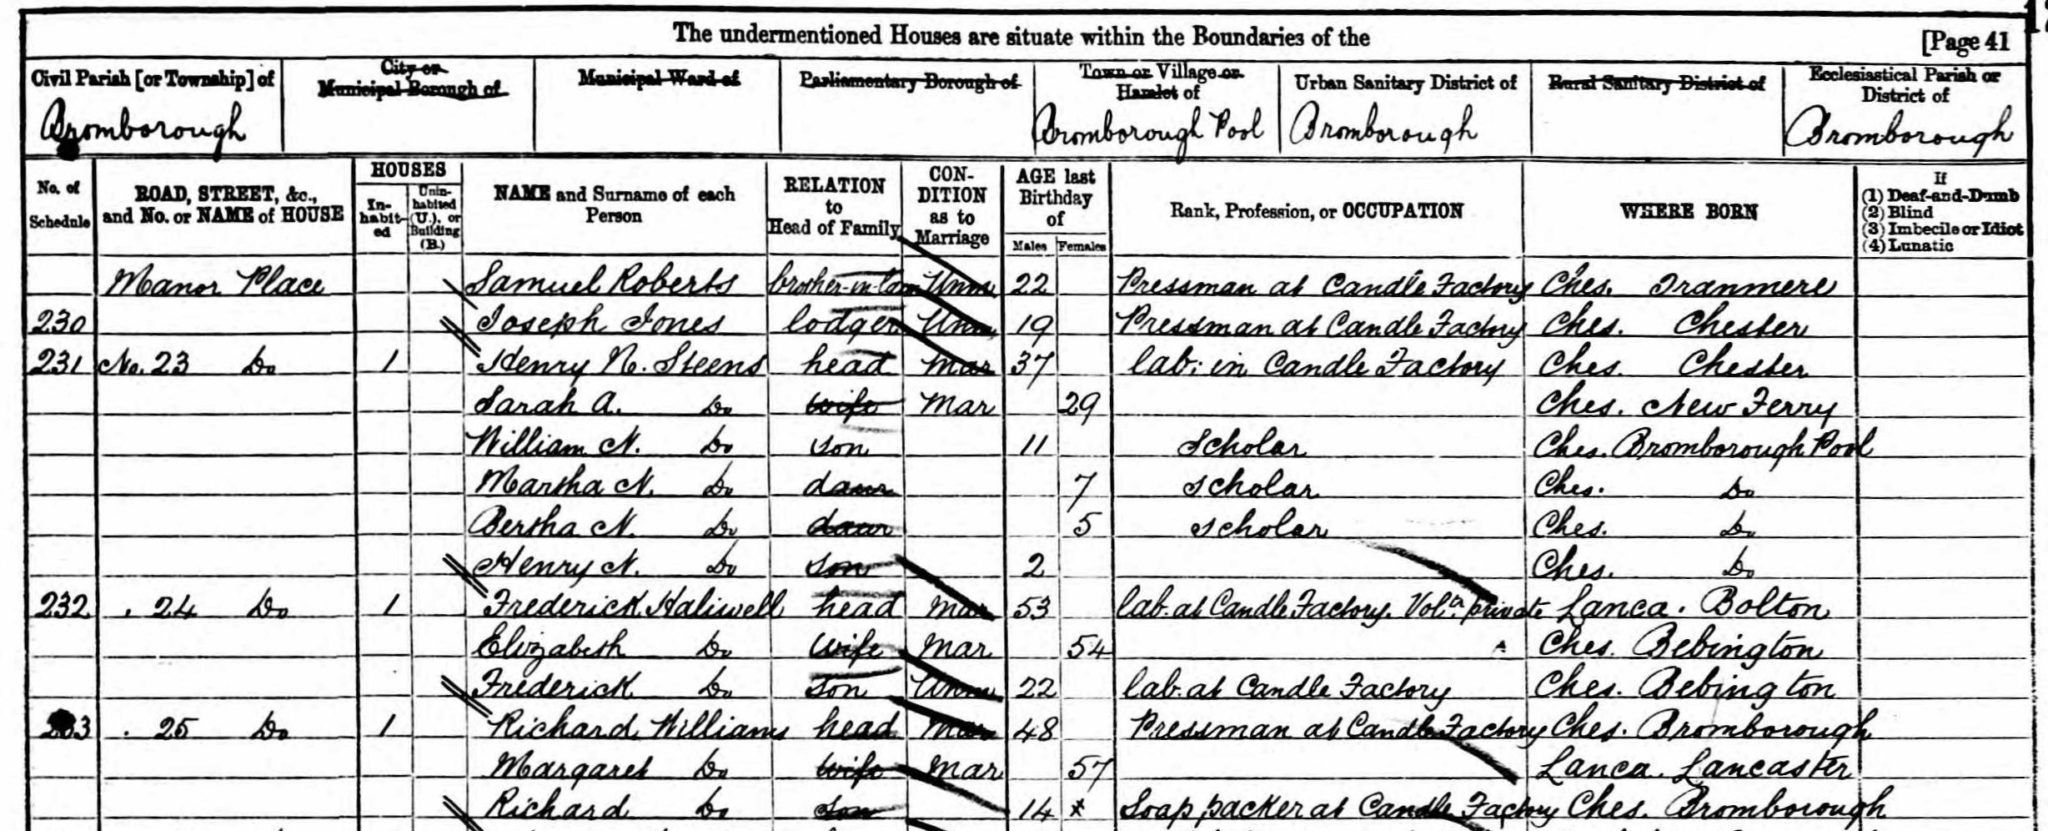 The undermentioned Houses are situate within the Boundaries of the [Page 41
Civil Parish [or Township] of
City or Municipal Borough of
Municipal Ward of
Parliamentary Borough of
Town or Village or Hamlet of
Urban Sanitary District of
Rural Sanitary District of
Ecclesiastical Parish or District of
Bromborough Bromborough Pool Bromborough Bromborough
No. of Schedule
ROAD, STREET, &c., and No. or NAME of HOUSE
HOUSES
In-habit-ed
Unin-habited (U.), or Building (B.)
NAME and Surname of each Person
RELATION to Head of Family
CON-DITION as to Marriage
AGE last Birthday of
Males Females
Rank, Profession, or OCCUPATION
WHERE BORN
If
(1) Deaf-and-Dumb
(2) Blind
(3) Imbecile or Idiot
(4) Lunatic
Manor Place Samuel Roberts brother-in-law Unm 22 Pressman at Candle Factory Ches. Tranmere
230 Joseph Jones lodger Unm 19 Pressman at Candle Factory Ches. Chester
231 No. 23 Do 1 Henry N. Steens head Mar 37 lab: in Candle Factory Ches. Chester
Sarah A. Do wife Mar 29 Ches. New Ferry
William N. Do son 11 Scholar Ches. Bromborough Pool
Martha N. Do daur 7 scholar Ches. Do
Bertha N. Do daur 5 scholar Ches. Do
Henry N. Do son 2 Ches. Do
232 . 24 Do 1 Frederick Haliwell head Mar 53 lab. at Candle Factory. Vol. private Lanca. Bolton
Elizabeth Do wife Mar 54 Ches. Bebington
Frederick Do son Unm 22 lab. at Candle Factory Ches. Bebington
233 . 25 Do 1 Richard Williams head Mar 48 Pressman at Candle Factory Ches. Bromborough
Margaret Do wife Mar 57 Lanca. Lancaster
Richard Do son 14 * Soap packer at Candle Factory Ches. Bromborough